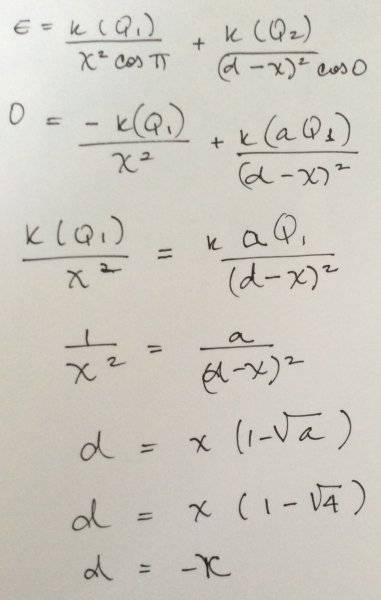 ϵ = k(Q₁) / x² cos π + k(Q₂) / (d-x)² cos 0
0 = - k(Q₁) / x² + k(aQ₁) / (d-x)²
k(Q₁) / x² = k aQ₁ / (d-x)²
1 / x² = a / (d-x)²
d = x (1-√a)
d = x (1-√4)
d = -x